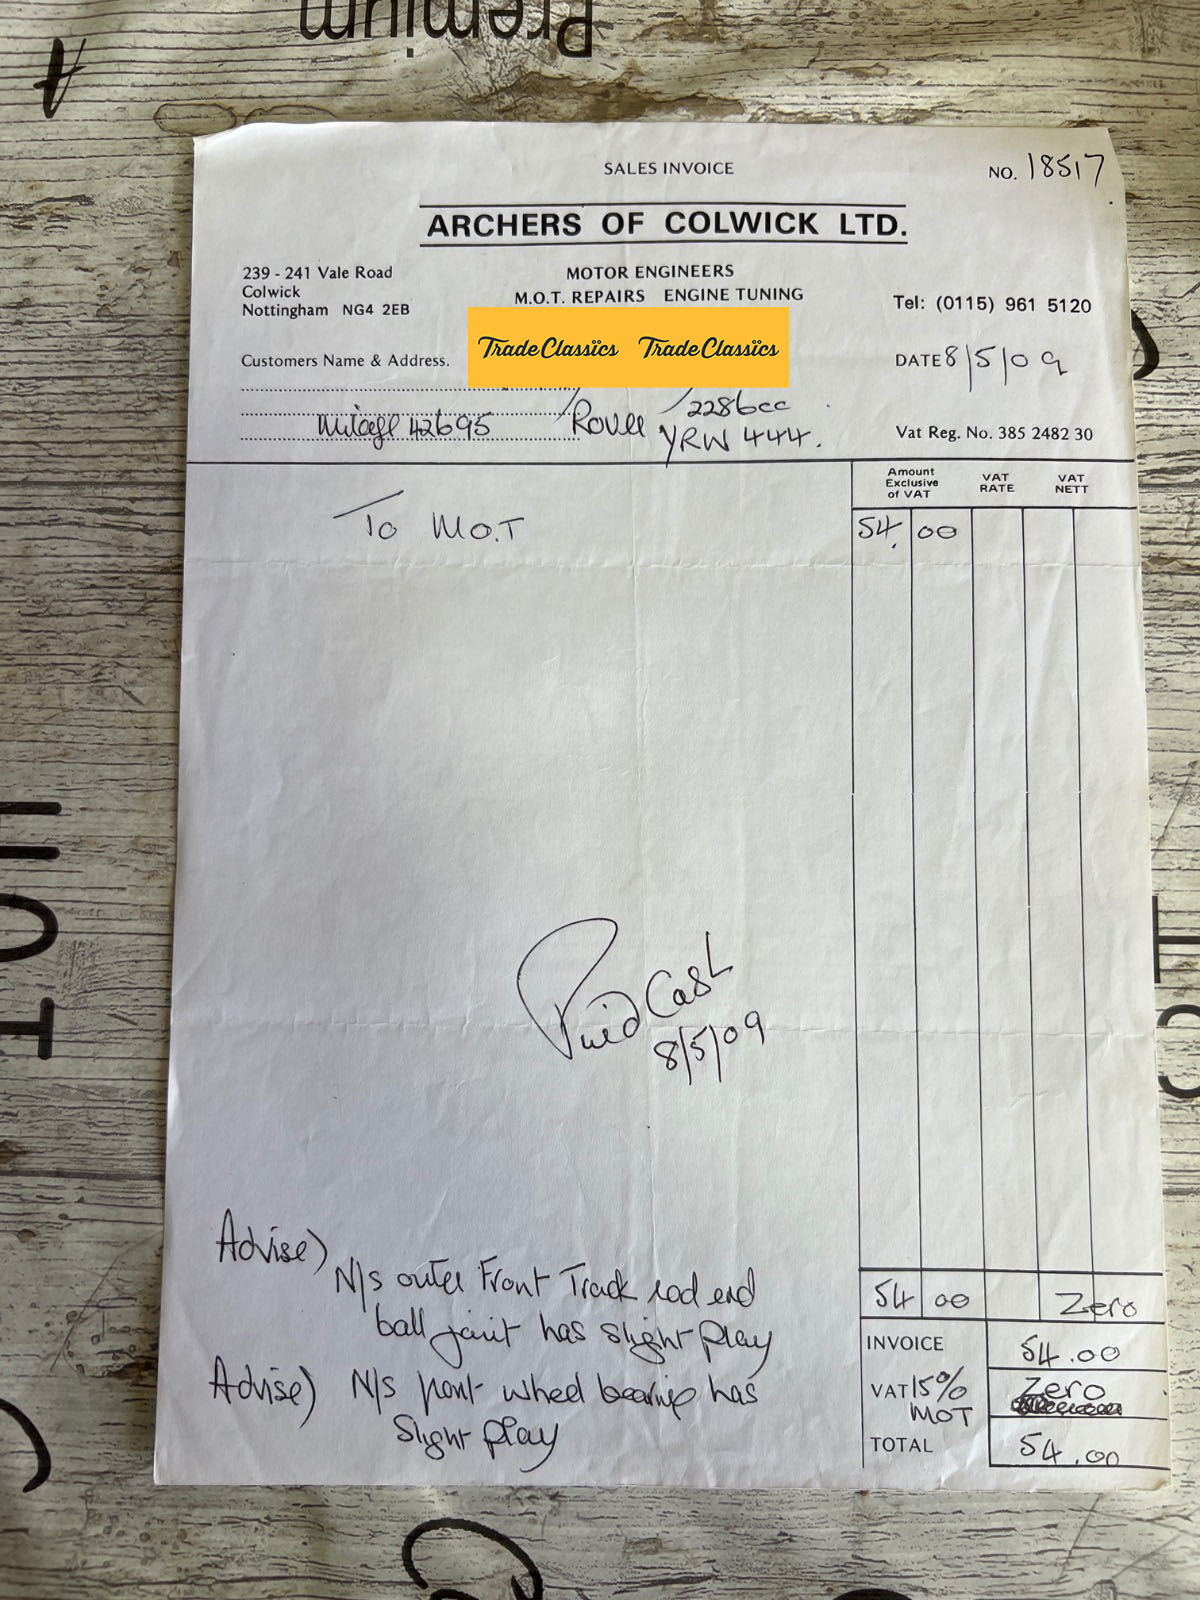 Premium
SALES INVOICE
NO. 18517
ARCHERS OF COLWICK LTD.
239 - 241 Vale Road
Colwick
Nottingham NG4 2EB
MOTOR ENGINEERS
M.O.T. REPAIRS ENGINE TUNING
Tel: (0115) 961 5120
TradeClassics TradeClassics
Customers Name & Address.
DATE 8/5/09
Mileage 42695 Rover 2286cc
YRW 444.
Vat Reg. No. 385 2482 30
Amount Exclusive of VAT
VAT RATE
VAT NETT
To M.O.T
54. 00
Paid Cash
8/5/09
Advise)
N/S outer Front Track rod end
ball joint has slight play
Advise) N/S front wheel bearing has
slight play
54 00 Zero
INVOICE 54.00
VAT 15% Zero
MOT
TOTAL 54.00